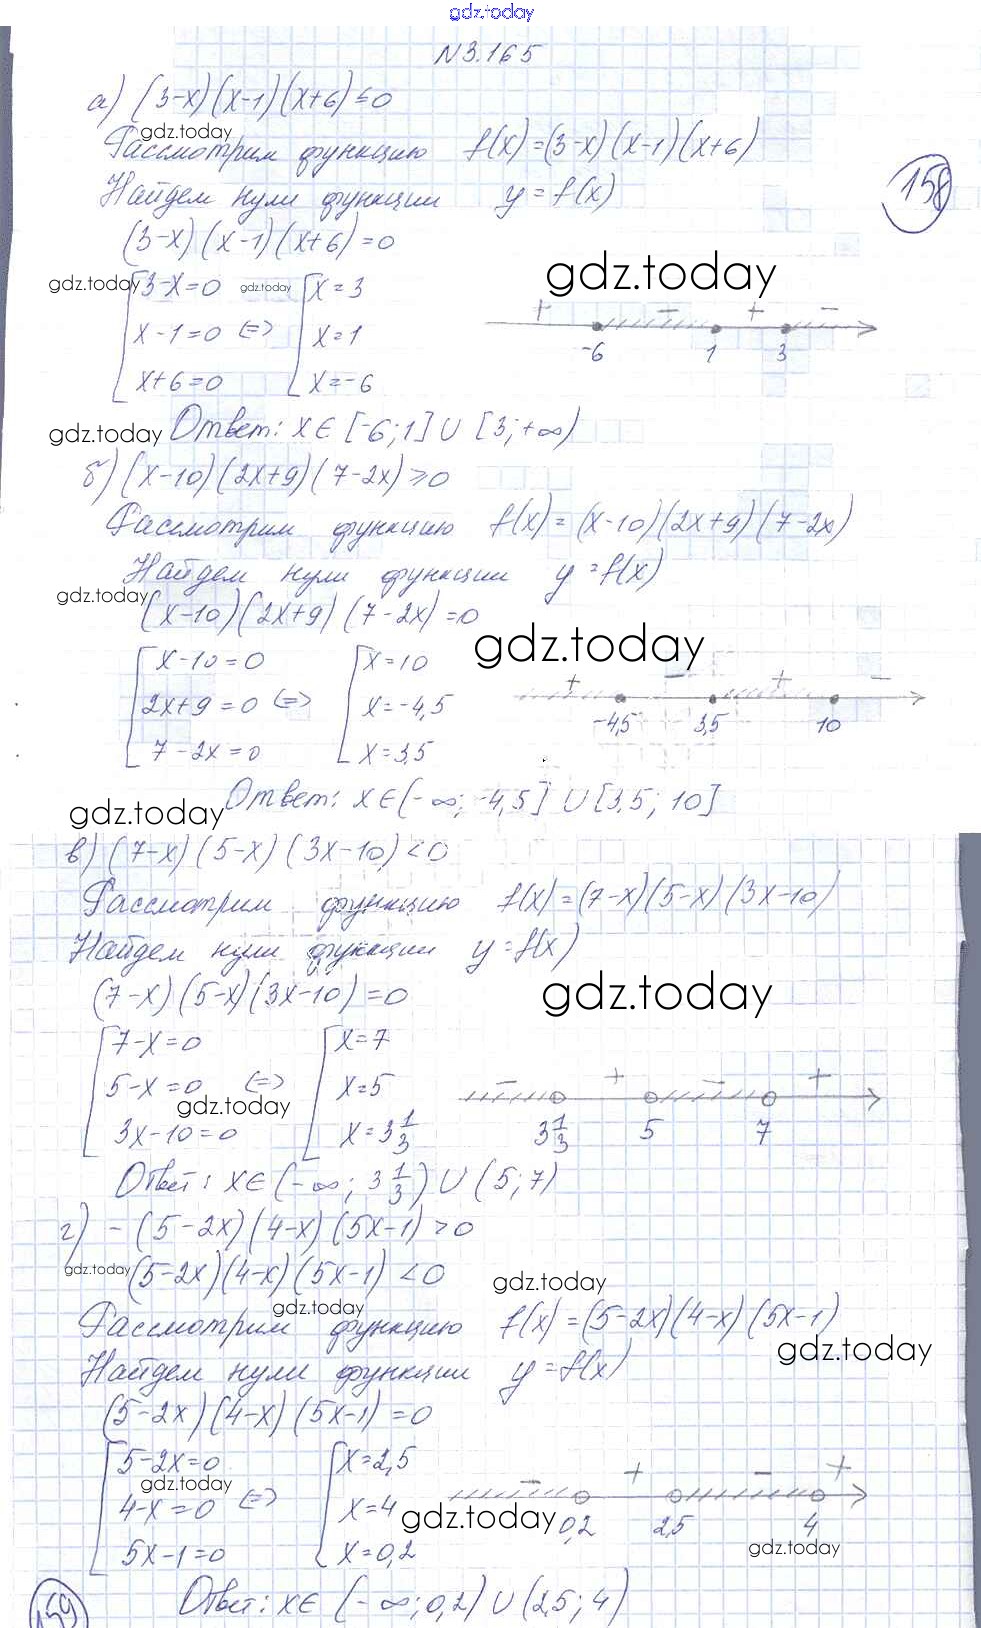 gdz.today
N 3.165
а) (3-x)(x-1)(x+6)≤0
gdz.today
Рассмотрим функцию f(x)=(3-x)(x-1)(x+6)
158
Найдем нули функции y=f(x)
(3-x)(x-1)(x+6)=0
gdz.today
gdz.today 3-x=0 gdz.today x=3
+ - + -
x-1=0 <=> x=1
-6 1 3
x+6=0 x=-6
gdz.today Ответ: x∈[-6;1]∪[3;+∞)
б) (x-10)(2x+9)(7-2x)≥0
Рассмотрим функцию f(x)=(x-10)(2x+9)(7-2x)
Найдем нули функции y=f(x)
gdz.today
(x-10)(2x+9)(7-2x)=0
gdz.today
x-10=0 x=10
+ - + -
2x+9=0 <=> x=-4,5
-4,5 3,5 10
7-2x=0 x=3,5
Ответ: x∈(-∞;-4,5]∪[3,5;10]
gdz.today
в) (7-x)(5-x)(3x-10)<0
Рассмотрим функцию f(x)=(7-x)(5-x)(3x-10)
Найдем нули функции y=f(x)
(7-x)(5-x)(3x-10)=0
gdz.today
7-x=0 x=7
- + - +
5-x=0 <=> x=5
gdz.today
3x-10=0 x=3 1/3
3 1/3 5 7
Ответ: x∈(-∞;3 1/3)∪(5;7)
г) -(5-2x)(4-x)(5x-1)>0
gdz.today (5-2x)(4-x)(5x-1)<0
gdz.today
gdz.today
Рассмотрим функцию f(x)=(5-2x)(4-x)(5x-1)
gdz.today
Найдем нули функции y=f(x)
(5-2x)(4-x)(5x-1)=0
5-2x=0 x=2,5
gdz.today
- + - +
4-x=0 <=> x=4
gdz.today
0,2 2,5 4
gdz.today
5x-1=0 x=0,2
Ответ: x∈(-∞;0,2)∪(2,5;4)
159